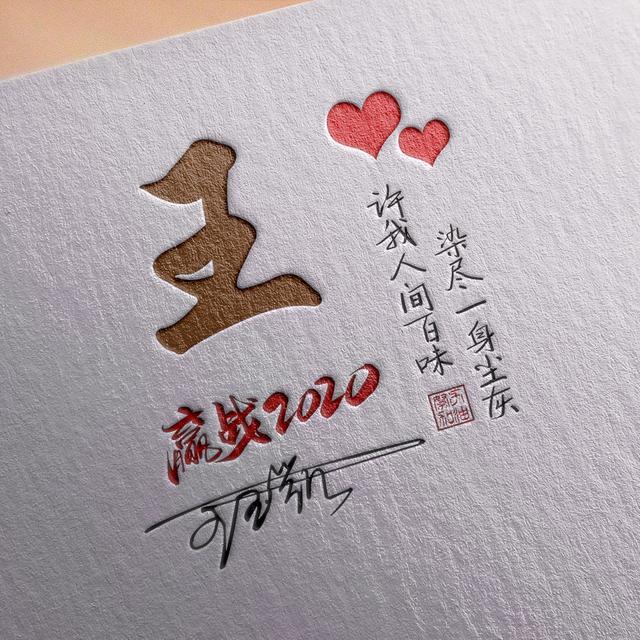 王
赢战2020
染尽一身尘灰
许我人间百味